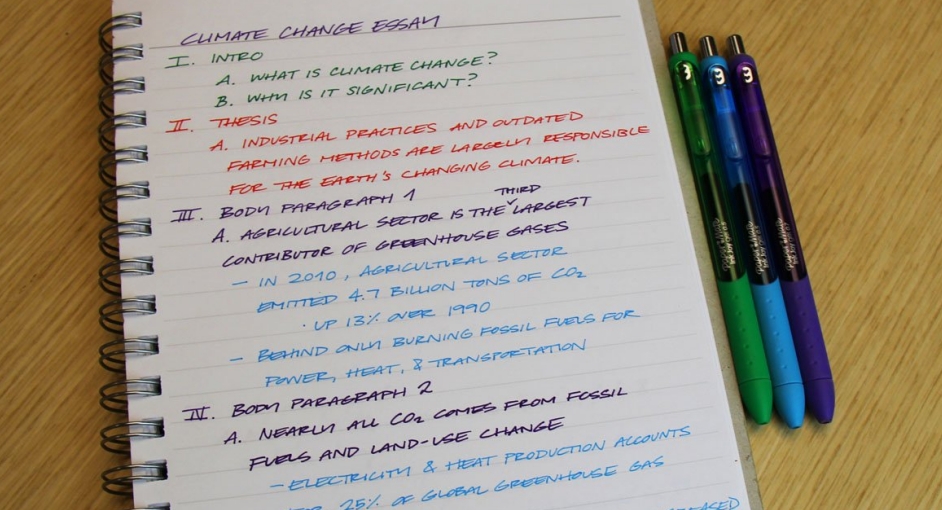 CLIMATE CHANGE ESSAY
I. INTRO
A. WHAT IS CLIMATE CHANGE?
B. WHY IS IT SIGNIFICANT?
II. THESIS
A. INDUSTRIAL PRACTICES AND OUTDATED
FARMING METHODS ARE LARGELY RESPONSIBLE
FOR THE EARTH'S CHANGING CLIMATE.
III. BODY PARAGRAPH 1
THIRD
A. AGRICULTURAL SECTOR IS THE LARGEST
CONTRIBUTOR OF GREENHOUSE GASES
- IN 2010, AGRICULTURAL SECTOR
EMITTED 4.7 BILLION TONS OF CO₂
· UP 13% OVER 1990
- BEHIND ONLY BURNING FOSSIL FUELS FOR
POWER, HEAT, & TRANSPORTATION
IV. BODY PARAGRAPH 2
A. NEARLY ALL CO₂ COMES FROM FOSSIL
FUELS AND LAND-USE CHANGE
- ELECTRICITY & HEAT PRODUCTION ACCOUNTS
25% OF GLOBAL GREENHOUSE GAS